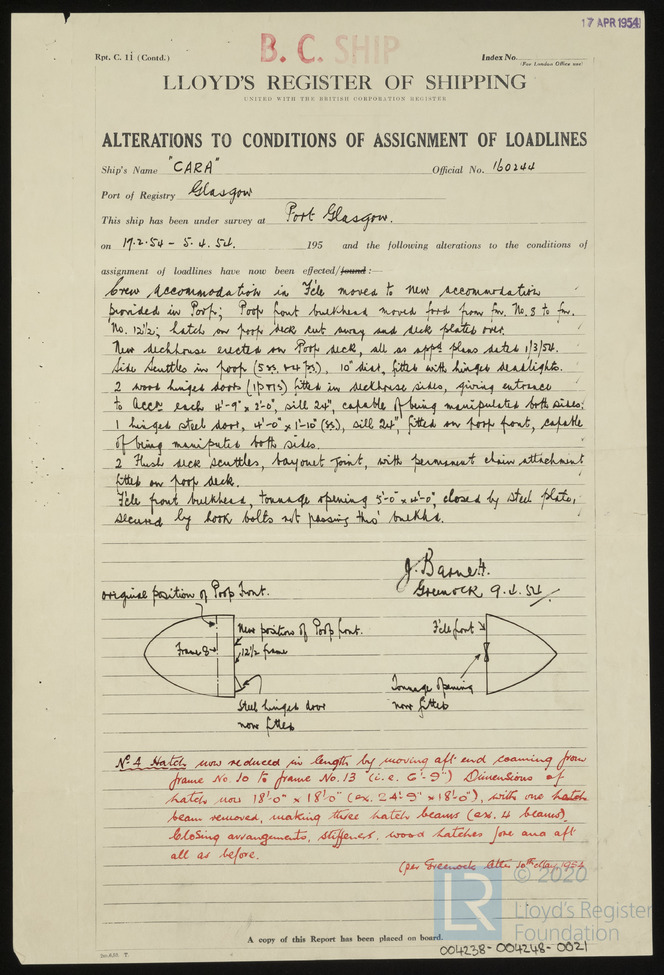 17 APR 1954
Rpt. C. 11 (Contd.)
B. C. SHIP
Index No.
(For London Office use)
LLOYD'S REGISTER OF SHIPPING
UNITED WITH THE BRITISH CORPORATION REGISTER
ALTERATIONS TO CONDITIONS OF ASSIGNMENT OF LOADLINES
Ship's Name "CARA" Official No. 160244
Port of Registry Glasgow
This ship has been under survey at Port Glasgow.
on 17.2.54 – 5.4.54. 195 and the following alterations to the conditions of
assignment of loadlines have now been effected/found:—
Crew accommodation in F'cle moved to new accommodation
provided in Poop; Poop front bulkhead moved ford from fm. No. 8 to fm.
No. 12½; hatch on poop deck cut away and deck plated over.
New deckhouse erected on Poop deck, all as appd plans dated 1/3/54.
Side Scuttles in poop (5 SS. 4 PS), 10" dia, fitted with hinged deadlights.
2 wood hinged doors (1P & 1S) fitted in deckhouse sides, giving entrance
to Accn each 4'-9" x 2'-0", sill 24", capable of being manipulated both sides.
1 hinged steel door, 4'-0" x 1'-10" (SS), sill 24", fitted on poop front, capable
of being maniputed both sides.
2 Flush deck scuttles, bayonet joint, with permanent chain attachment
fitted on poop deck.
F'cle front bulkhead, tonnage opening 5'-0" x 4'-0", closed by steel plate,
secured by hook bolts not passing thro' bulkhd.
J. Barnett.
Greenock 9.4.54
original position of Poop Front.
New position of Poop front.
Frame 8
12½ frame
Steel hinged door
now fitted
F'cle front
Tonnage opening
now fitted
No. 4 Hatch now reduced in length by moving aft end coaming from
frame No. 10 to frame No. 13 (i.e. 6'-9") Dimensions of
hatch now 18'-0" x 18'-0" (ex. 24'-9" x 18'-0"), with one hatch
beam removed, making three hatch beams (ex. 4 beams).
Closing arrangements, stiffeners, wood hatches fore and aft
all as before.
(per Greenock letter 10th May, 1954
A copy of this Report has been placed on board.
LR
© 2020
Lloyd's Register
Foundation
004238-004248-0021